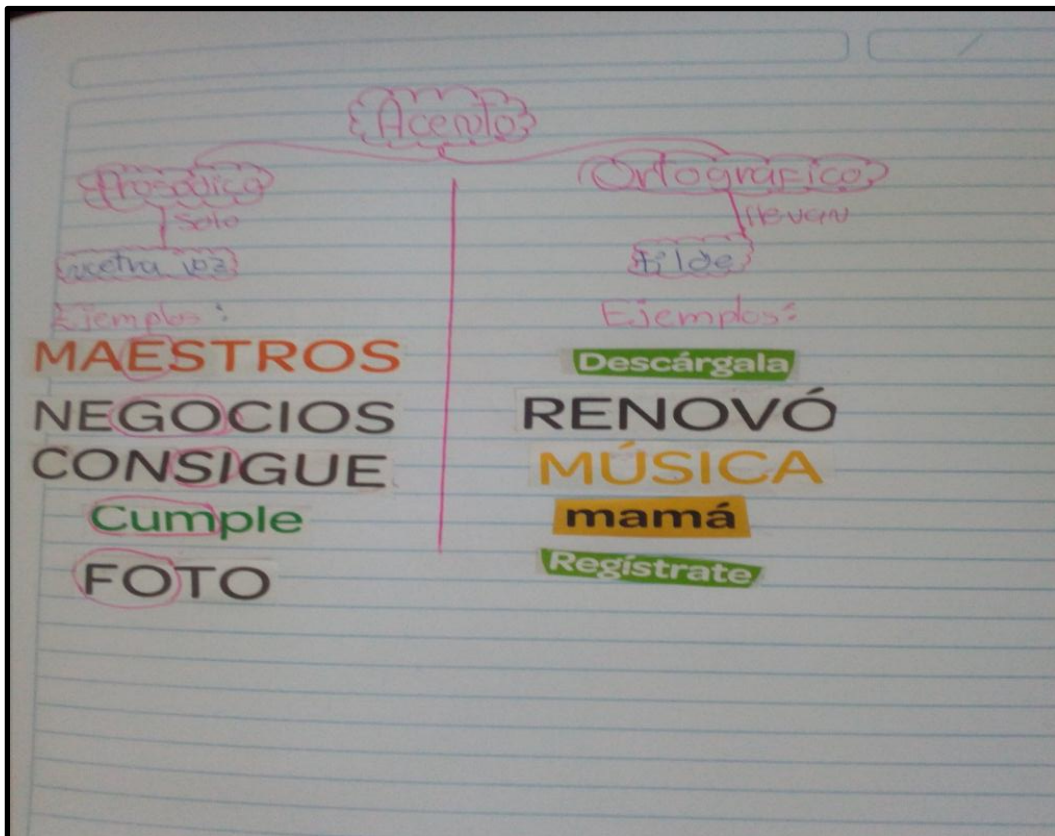 Acento
Prosódico
Solo
voz
Ejemplos:
MAESTROS
NEGOCIOS
CONSIGUE
Cumple
FOTO
Ortográfico
llevan
tilde
Ejemplos:
Descárgala
RENOVÓ
MÚSICA
mamá
Regístrate